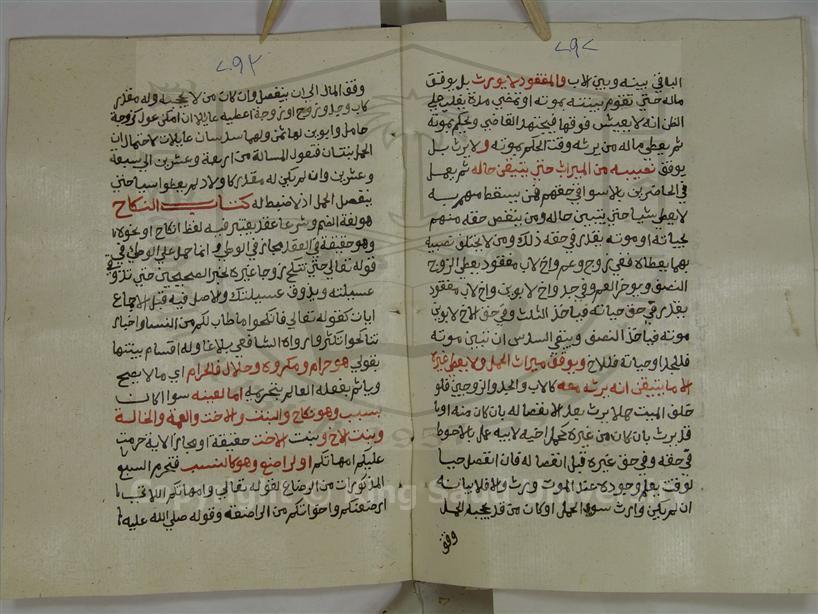 ٢٩٢
الباقي بينه وبين لاب والمفقود لا يورث بل يوقف
ماله حتى تقوم بينته بموته او تمضي مدة يغلب على
الظن انه لا يعيش فوقها فيجتهد القاضي ويحكم بموته
ثم يعطي ماله من يرثه وقت الحكم بموته ولا يرث بل
يوقف نصيبه من الميراث حتى يتيقن حاله ثم يعمل
في الحاضرين بالاسوا في حقهم فمن يسقط منهم به
لا يعطى شيا حتى يتبين حاله ومن ينقص حقه منهم
بحياته او موته يقدر في حقه ذلك ومن لا يختلق نصيبه
بهما يعطاه ففي زوج وعم واخ لاب مفقود يعطى الزوج
النصف ويوخر العم وفي جد واخ لابوين واخ لاب مفقود
يقدر في حق الجد حياته فياخذ الثلث وفي حق الاخ لابوين
موته فياخذ النصف ويبقى السدس ان تبين موته
فللجد او حياته فللاخ ويوقف ميراث الحمل ولا يعطى غيره
الا ما يتيقن انه يرثه معه كالاب والجد والزوجين فلو
خلف الميت حملا يرث بعد الانفصاله بان كان منه او
قد يرث بان كان من غيره كحمل اخيه لابيه عمل بالاحوط
في حقه وفي حق غيره قبل انفصاله فان انفصل حيا
لوقت يعلم وجوده عند الموت ورث والا فلا بيانه
ان لم يكن وارث سوى الحمل او كان من قد يحجبه الحمل
وقف
٢٩٣
وقف المال الى ان ينفصل وان كان من لا يحجبه وله مقدر
كاب وجد وزوج او زوجة اعطيه عايلا ان امكن عول كزوجة
حامل وابوين لها ثمن ولهما سدسان عايلات لاحتمال ان
الحمل بنتان فتعول المسالة من اربعة وعشرين الى سبعة
وعشرين وان لم يكن له مقدر كاولاد لم يعطوا شيا حتى
ينفصل الحمل اذ لا ضبط له كتاب النكاح
هو لغة الضم وشرعا عقد يعتبر فيه لفظ انكاح او نحوه
وهو حقيقة في العقد مجاز في الوطي وانما حمل على الوطي في
قوله تعالى حتى تنكح زوجا غيره لخبر الصحيحين حتى تذوقي
عسيلته ويذوق عسيلتك والاصل فيه قبل الاجماع
ايات كقوله تعالى فانكحوا ما طاب لكم من النسا واخبار
تناكحوا تكثروا رواه الشافعي بلاغا وله اقسام بينتها
بقولي هو حرام ومكروه وحلال فالحرام اي ما لا يصح
وياثم بفعله العالم بتحريمه اما لعينه سوا اكان
بسبب وهو نكاح والبنت والاخت والعمة والخالة
وبنت الاخ وبنت الاخت حقيقة او مجاز الاية حرمت
عليكم امهاتكم او لرضاع وهو كالنسب فتحرم السبع
المذكورات من الرضاع لقوله تعالى وامهاتكم اللاتي
ارضعنكم واخواتكم من الرضاعة وقوله صلى الله عليه
Copyright © King Saud University